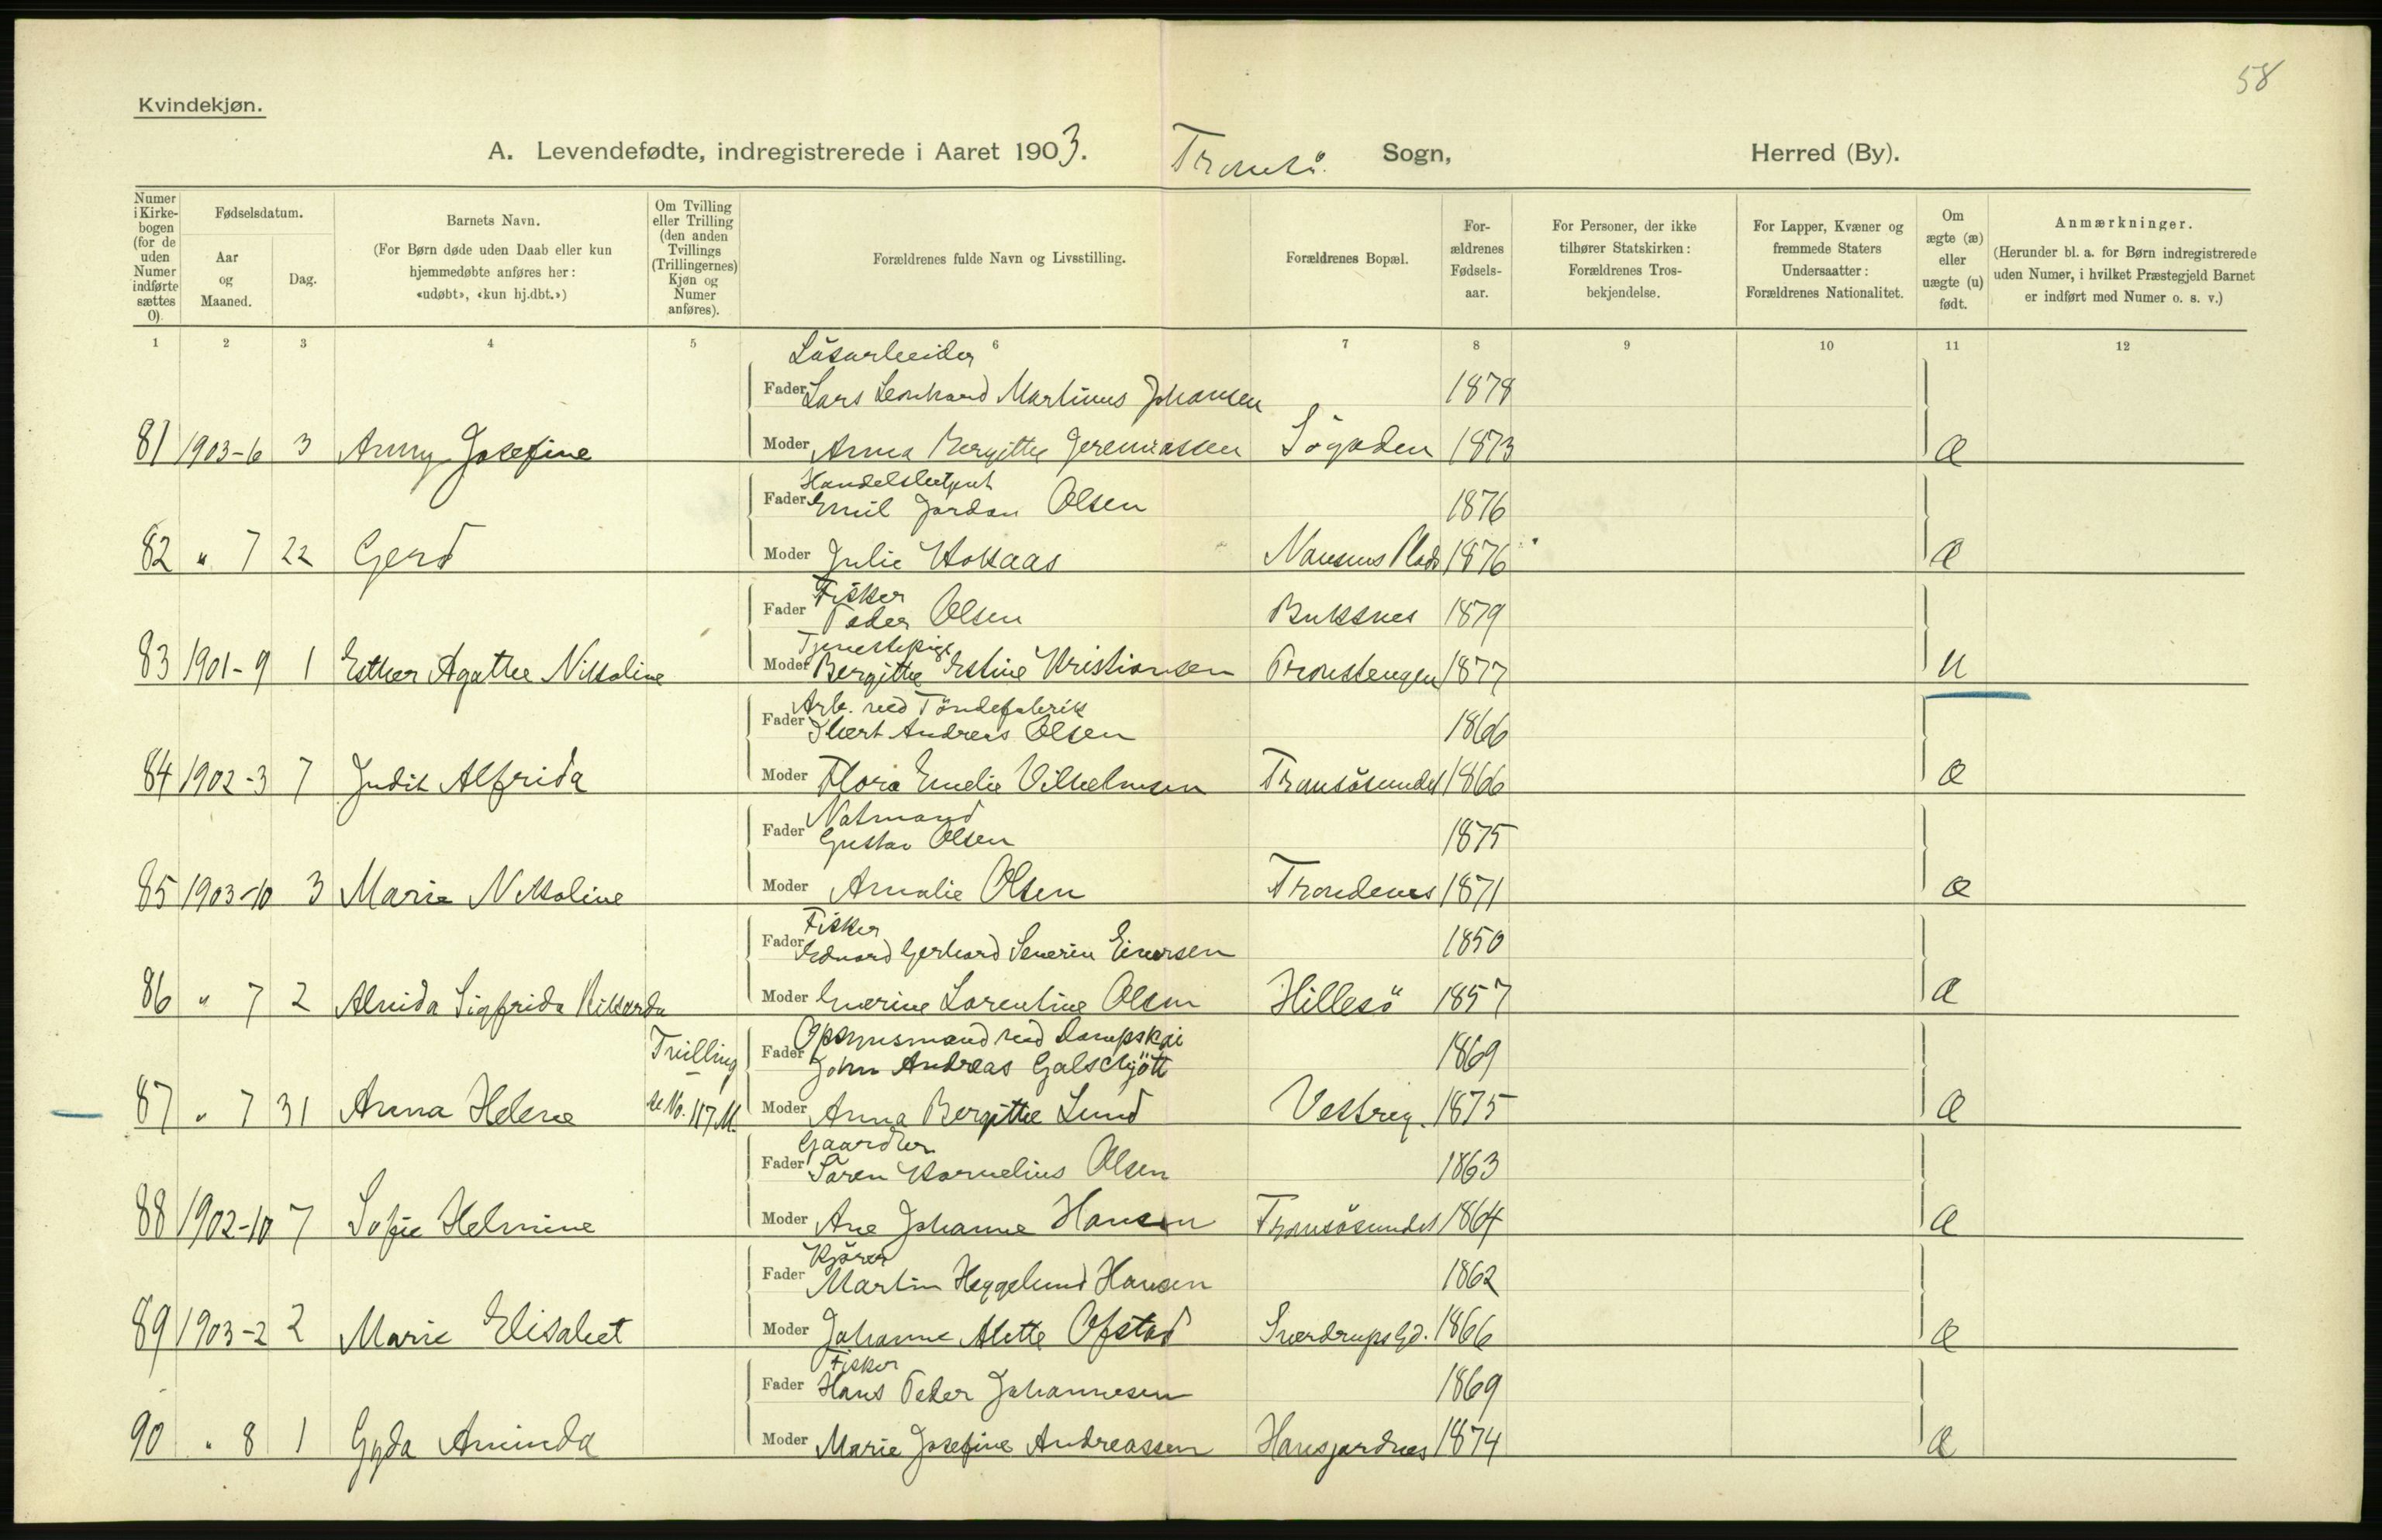 58
Kvindekjøn.
A. Levendefødte, indregistrerede i Aaret 1903. Tromsö. Sogn, Herred (By).
Numer i Kirkebogen (for de uden Numer indførte sættes 0).
Fødselsdatum.
Aar og Maaned.
Dag.
Barnets Navn.
(For Børn døde uden Daab eller kun hjemmedøbte anføres her: «udøbt», «kun hj.dbt.»)
Om Tvilling eller Trilling (den anden Tvillings (Trillingernes) Kjøn og Numer anføres).
Forældrenes fulde Navn og Livsstilling.
Forældrenes Bopæl.
Forældrenes Fødselsaar.
For Personer, der ikke tilhører Statskirken: Forældrenes Trosbekjendelse.
For Lapper, Kvæner og fremmede Staters Undersaatter: Forældrenes Nationalitet.
Om ægte (æ) eller uægte (u) født.
Anmærkninger.
(Herunder bl. a. for Børn indregistrerede uden Numer, i hvilket Præstegjeld Barnet er indført med Numer o. s. v.)
1 2 3 4 5 6 7 8 9 10 11 12
Løsarbeider
Fader Lars Leonhard Martinus Johansen 1878
81 1903-6 3 Anny Josefine Moder Anna Bergitte Jeremiassen Sögaden 1873 æ
Fader Emil Jordan Olsen 1876
82 " 7 22 Gerd Moder Julie Hokaas Nansens Plads 1876 æ
Fisker
Fader Peder Olsen Buksnes 1879
Tjenestepige
83 1901-9 1 Esther Agathe Nikoline Moder Bergitte Estine Kristiansen 1877 u
Arb. ved Töndefabrik
Fader Andreas Olsen 1866
84 1902-3 7 Judit Alfrida Moder Flora Emelie Vilhelmsen Tromsösundet 1866 æ
Natmand
Fader Gustav Olsen 1875
85 1903-10 3 Marie Nikoline Moder Amalie Olsen Trondenes 1871 æ
Fisker
Fader Edvard Gerhard Severin Einersen 1850
86 " 7 2 Alvida Sigfrida Rikarda Moder Lorentine Olsen Hillesö 1857 æ
Tvilling Opsynsmand ved Dampskai
Fader John Andreas Galschjött 1869
87 " 7 31 Anna Helene se No. 117 M. Moder Anna Bergitte Lund Vestreg. 1875 æ
Gaardbr
Fader Sören Kornelius Olsen 1863
88 1902-10 7 Sofie Helmine Moder Ane Johanne Hansen Tromsösundet 1864 æ
Kjører
Fader Martin Heggelund Hansen 1862
89 1903-2 2 Marie Elisabet Moder Johanne Alette Ofstad Sverdrups Gd. 1866 æ
Fisker
Fader Hans Peder Johannesen 1869
90 " 8 1 Gyda Aminda Moder Marie Josefine Andreassen Hansjordnes 1874 æ